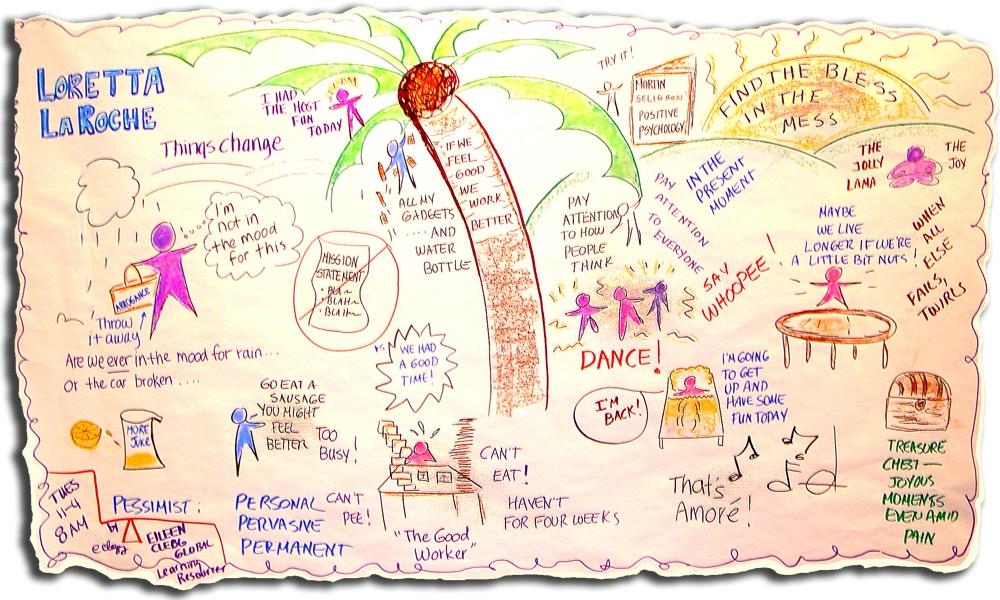 LORETTA
LAROCHE
Things change
I HAD
THE MOST
FUN
TODAY
IF WE
FEEL
GOOD
WE
WORK
BETTER
TRY IT!
MARTIN
SELIGMAN
POSITIVE
PSYCHOLOGY
FIND THE BLESS
IN THE
MESS
THE
JOLLY
LAMA
THE
JOY
I'm
not in
the mood
for this
ARROGANCE
Throw
it away
Are we ever in the mood for rain...
or the car broken ....
MISSION
STATEMENT
• BLAH
• BLAH
• BLAH
ALL MY
GADGETS
.... AND
WATER
BOTTLE
PAY
ATTENTION
TO HOW
PEOPLE
THINK
PAY
ATTENTION
TO
EVERYONE
IN THE
PRESENT
MOMENT
SAY
WHOOPEE!
MAYBE
WE LIVE
LONGER IF WE'RE
A LITTLE BIT NUTS!
WHEN
ALL
ELSE
FAILS,
TWIRLS
VS
WE HAD
A GOOD
TIME!
DANCE!
I'M
BACK!
I'M GOING
TO GET
UP AND
HAVE SOME
FUN TODAY
MORE
JUICE
GO EAT A
SAUSAGE
YOU MIGHT
FEEL
BETTER
TOO
BUSY!
CAN'T
EAT!
CAN'T
PEE!
HAVEN'T
FOR FOUR WEEKS
"The Good
Worker"
That's
Amoré!
TREASURE
CHEST—
JOYOUS
MOMENTS
EVEN AMID
PAIN
PESSIMIST:
PERSONAL
PERVASIVE
PERMANENT
TUES
11-4
8AM
by
EILEEN
CLEGG
GLOBAL
Learning
Resources